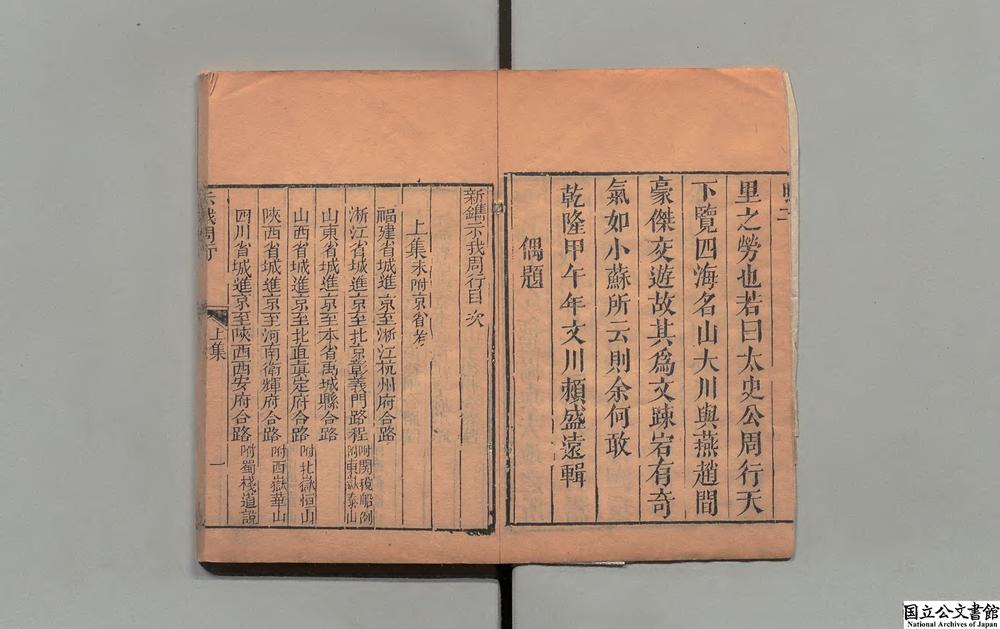 里之勞也若曰太史公周行天
下覽四海名山大川與燕趙間
豪傑交遊故其爲文踈宕有奇
氣如小蘇所云則余何敢
乾隆甲午年文川賴盛遠輯
偶題
新鐫示我周行目次
上集末附京省考
福建省城進京至淛江杭州府合路
淛江省城進京至北京彰義門路程附関稅船例
山東省城進京至本省禹城縣合路附東嶽泰山
山西省城進京至北直真定府合路附北嶽恒山
陝西省城進京至河南衛輝府合路附西嶽華山
四川省城進京至陝西西安府合路附蜀棧道說
示我周行
上集
一
国立公文書館
National Archives of Japan